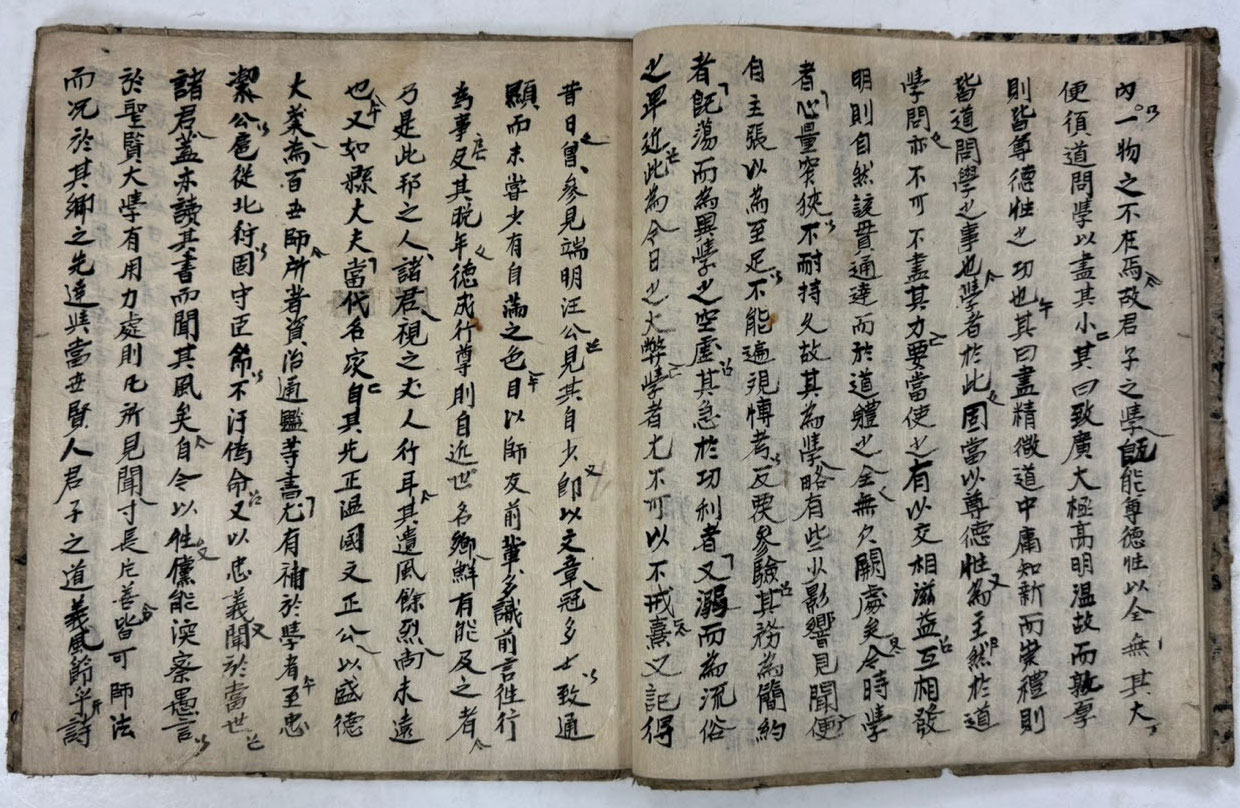 內一物之不在焉故君子之學旣能尊德性以全無其大
便須道問學以盡其小其曰致廣大極高明溫故而敦厚
則皆尊德性之功也其曰盡精微道中庸知新而崇禮則
皆道問學之事也學者於此固當以尊德性為主然於道
學問亦不可不盡其力要當使之有以交相滋益互相發
明則自然該貫通達而於道體之全無欠闕處矣今時學
者心量窄狹不耐持久故其為學略有些少影響見聞便
自主張以為至足不能遍視博考反要參驗其務為簡約
者旣蕩而為異學之空虛其急於功利者又溺而為流俗
之卑近此為今日之大弊學者尤不可以不戒熹又記得
昔日曾參見端明汪公見其自少卽以文章冠多士致通
顯而未嘗少有自滿之色日以師友前輩多識前言往行
為事及其晚年德成行尊則自近世名卿鮮有能及之者
乃是此邦之人諸君視之丈人行耳其遺風餘烈尚未遠
也又如縣大夫當代名家自其先正溫國文正公以盛德
大業為百世師所著資治通鑑等書尤有補於學者至忠
潔公扈從北狩固守臣節不汙偽命又以忠義聞於當世
諸君蓋亦讀其書而聞其風矣自今以往儻能深察愚言
於聖賢大學有用力處則凡所見聞寸長片善皆可師法
而況於其鄉之先達與當世賢人君子之道義風節乎詩